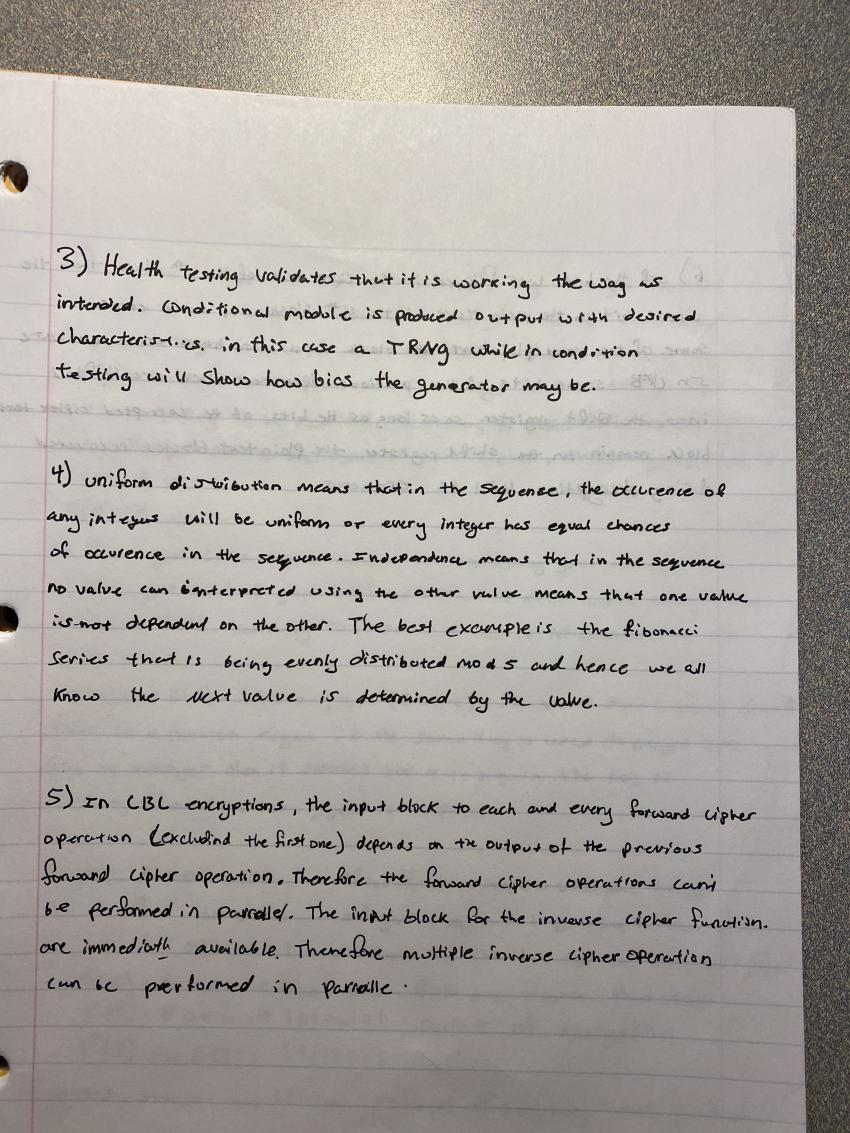 3) Health testing validates that it is working the way as
intended. Conditional module is produced output with desired
characteristics. in this case a TRNG while in condition
testing will show how bias the generator may be.
4) uniform distribution means that in the sequence, the occurence of
any integers will be uniform or every integer has equal chances
of occurence in the sequence. Independence means that in the sequence
no value can interpreted using the other value means that one value
is not dependent on the other. The best example is the fibonacci
series that is being evenly distributed mod 5 and hence we all
know the next value is determined by the value.
5) In CBC encryptions, the input block to each and every forward cipher
operation (excludind the first one) depends on the output of the previous
forward cipher operation. Therefore the forward cipher operations can't
be performed in parrallel. The input block for the inverse cipher function.
are immediatly available. Therefore multiple inverse cipher operation
can be preformed in parralle.